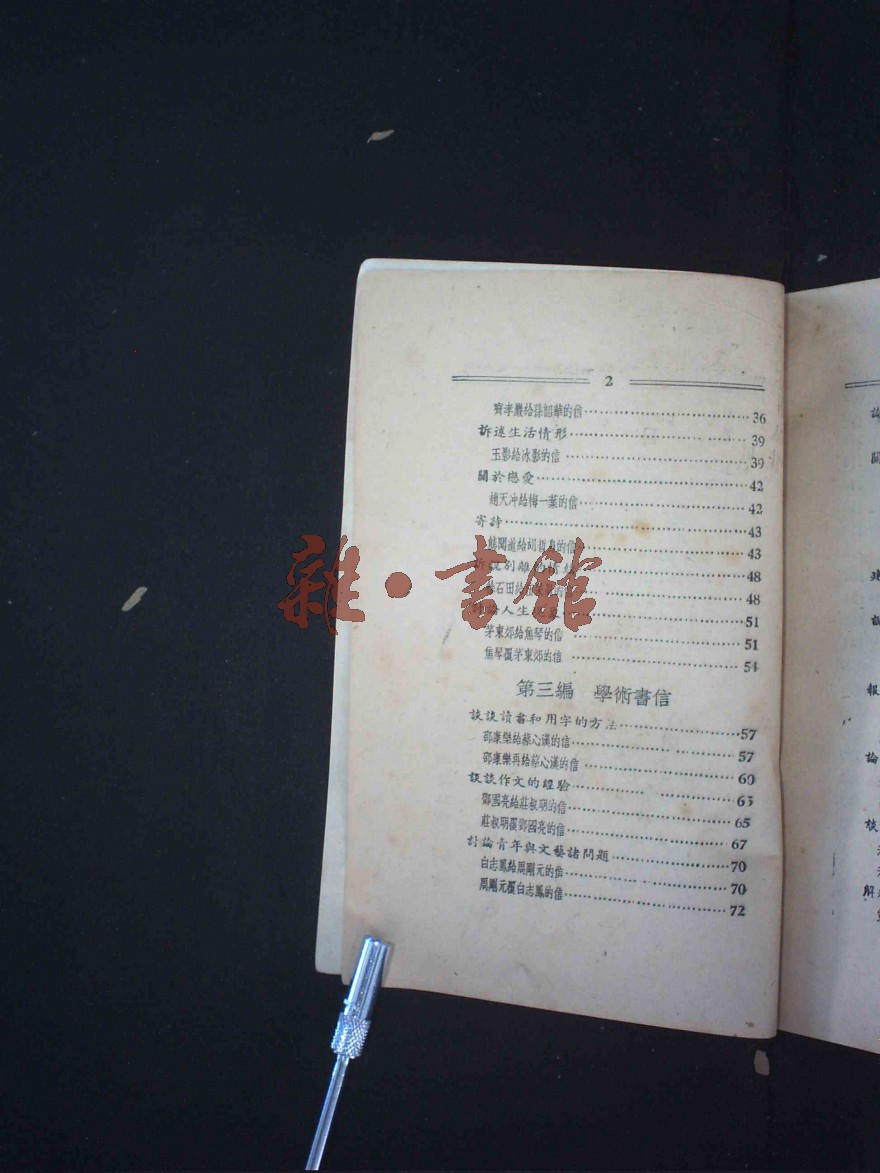 2
齊孝嚴給孫韶華的信 36
訴述生活情形 39
玉影給冰影的信 39
關於戀愛 42
趙天冲給梅一葉的信 42
寄詩 43
給胡哲身的信 43
別離 48
石田給 的信 48
人生 51
茅東郊給焦琴的信 51
焦琴覆茅東郊的信 54
第三編 學術書信
談談讀書和用字的方法 57
邵康樂給蔡心漢的信 57
邵康樂再給蔡心漢的信 60
談談作文的經驗 65
鄧國亮給莊叔明的信 65
莊叔明覆鄧國亮的信 67
討論青年與文藝諸問題 70
白志鳳給周剛元的信 70
周剛元覆白志鳳的信 72
雜·書館
論
關
報
論
談
解